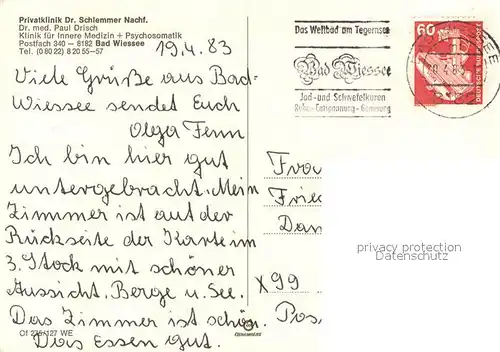 Privatklinik Dr. Schlemmer Nachf.
Dr. med. Paul Drisch
Klinik für Innere Medizin + Psychosomatik
Postfach 340 – 8182 Bad Wiessee
Tel. (0 80 22) 8 20 55–57
19.4.83
Viele Grüße aus Bad-
Wiessee sendet Euch
Olga Fenn
Ich bin hier gut
untergebracht. Mein
Zimmer ist auf der
Rückseite der Karte im
3. Stock mit schöner
Aussicht, Berge u. See.
Das Zimmer ist schön.
Das Essen gut.
Of 276/127 WE
Das Weltbad am Tegernsee
Bad Wiessee
Jod- und Schwefelkuren
Ruhe - Entspannung - Genesung
60
DEUTSCHE BUNDESPOST
Frau
Fried
Dan
X99
Pos
privacy protection
Datenschutz